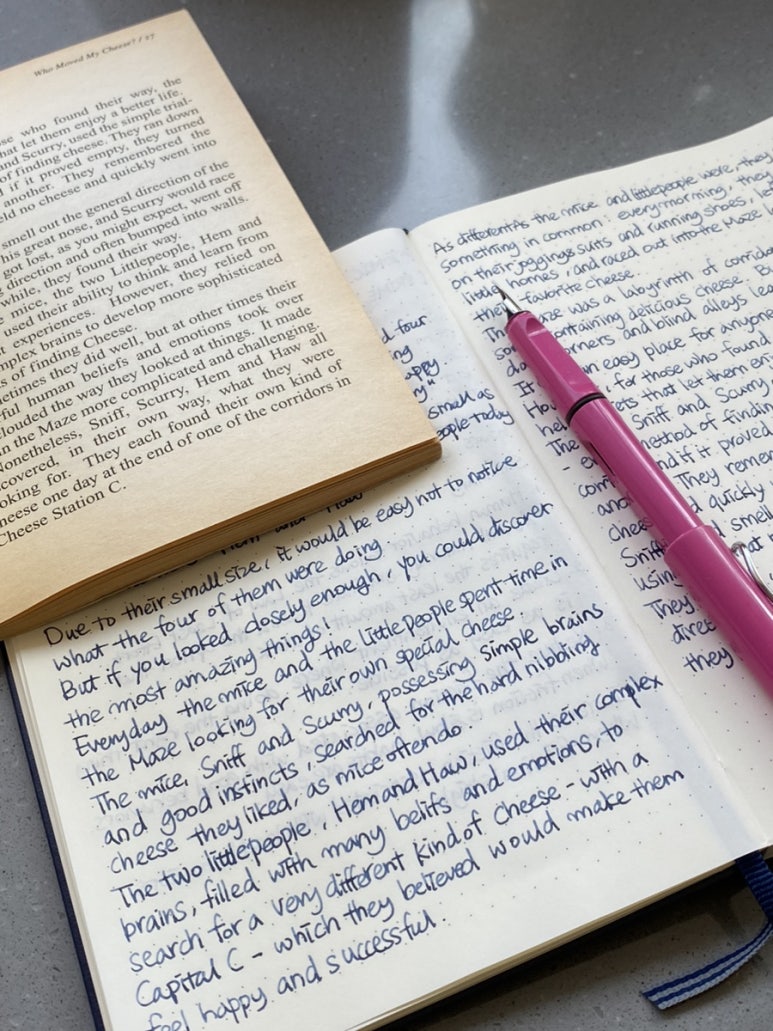 Who Moved My Cheese? / 27
who found their way, the
that let them enjoy a better life.
and Scurry, used the simple trial-
of finding cheese. They ran down
if it proved empty, they turned
another. They remembered the
held no cheese and quickly went into
smell out the general direction of the
his great nose, and Scurry would race
got lost, as you might expect, went off
direction and often bumped into walls.
while, they found their way.
mice, the two Littlepeople, Hem and
used their ability to think and learn from
experiences. However, they relied on
complex brains to develop more sophisticated
of finding Cheese.
Sometimes they did well, but at other times their
human beliefs and emotions took over
clouded the way they looked at things. It made
in the Maze more complicated and challenging.
Nonetheless, Sniff, Scurry, Hem and Haw all
in their own way, what they were
looking for. They each found their own kind of
cheese one day at the end of one of the corridors in
Cheese Station C.
four
smell as
people today
Hem and Haw
Due to their small size, it would be easy not to notice
what the four of them were doing.
But if you looked closely enough, you could discover
the most amazing things!
Everyday the mice and the littlepeople spent time in
the Maze looking for their own special cheese.
The mice, Sniff and Scurry, possessing simple brains
and good instincts, searched for the hard nibbling
cheese they liked, as mice often do.
The two littlepeople, Hem and Haw, used their complex
brains, filled with many belifs and emotions, to
search for a very different kind of Cheese - with a
Capital C - which they believed would make them
feel happy and successful.
As different As the mice and littlepeople were, they
something in common: every morning, they
on their jogging suits and running shoes, left
little homes, and raced out into the Maze
their favorite cheese.
was a labyrinth of corridors
containing delicious cheese. But
corners and blind alleys
It an easy place for anyone
for those who found
that let them
The Sniff and Scurry
method of finding
and if it proved
They
cheese quickly
Sniff smell
using
They
direct
they